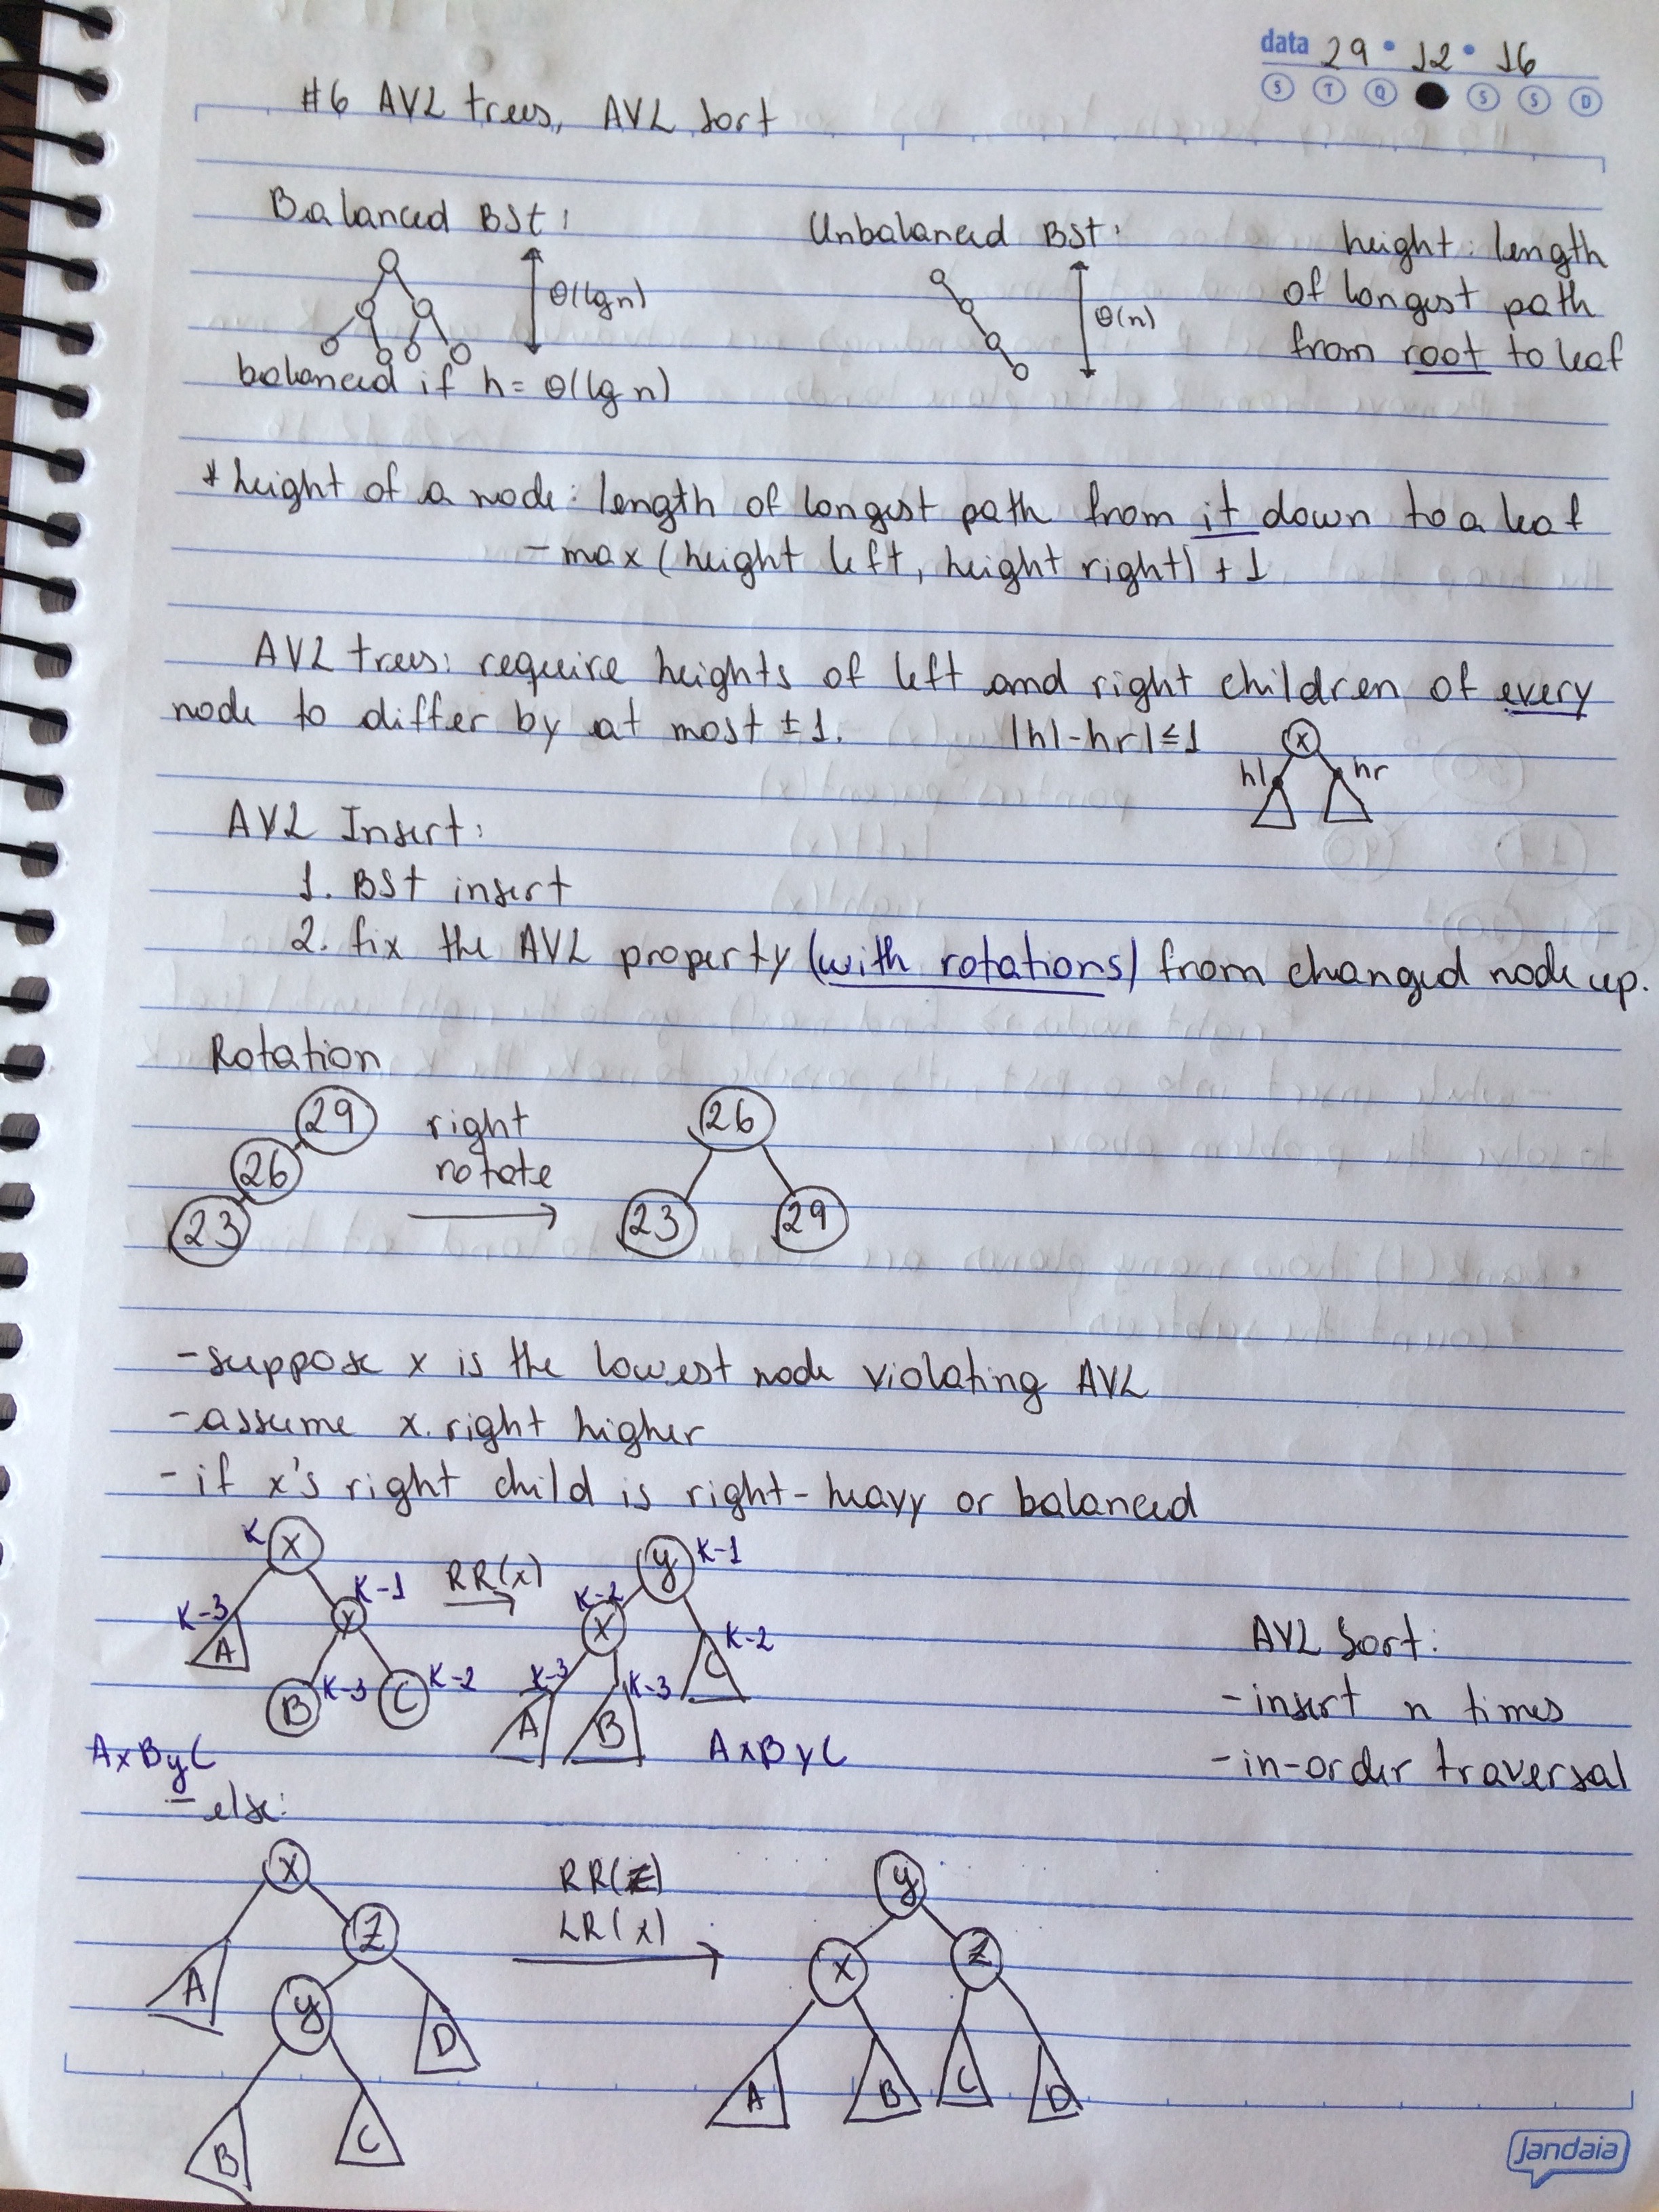 data 29 • 12 • 16
S T Q S S D
#6 AVL trees, AVL sort
Balanced BST:
Θ(lg n)
balanced if h = Θ(lg n)
Unbalanced BST:
Θ(n)
height: length
of longest path
from root to leaf
* height of a node: length of longest path from it down to a leaf
- max (height left, height right) + 1
AVL trees: require heights of left and right children of every
node to differ by at most ±1. |hl-hr|≤1
x
hl hr
AVL Insert:
1. BST insert
2. fix the AVL property (with rotations) from changed node up.
Rotation
29
26
23
right
rotate
26
23 29
- suppose x is the lowest node violating AVL
- assume x.right higher
- if x's right child is right-heavy or balanced
K x
K-3 K-1
A y
B K-3 C K-2
AxByC
RR(x)
y K-1
K-2 x
K-2 C
K-3 A
K-3 B
AxByC
AVL Sort:
- insert n times
- in-order traversal
- else:
x
A z
y D
B C
RR(z)
LR(x)
y
x z
A B C D
Jandaia